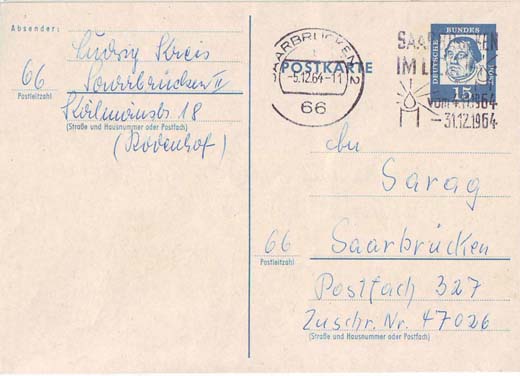 Absender:
Ludwig Kreis
66 Saarbrücken II
Postleitzahl
18
(Straße und Hausnummer oder Postfach)
(Rodenhof)
SAARBRÜCKEN 2
-5.12.64-11
66
POSTKARTE
SAARBRÜCKEN
IM
vom 4.11.1964
– 31.12.1964
DEUTSCHE BUNDESPOST
15
An
Sarag
66 Saarbrücken
Postleitzahl
Postfach 327
Zuschr. Nr. 47026
(Straße und Hausnummer oder Postfach)